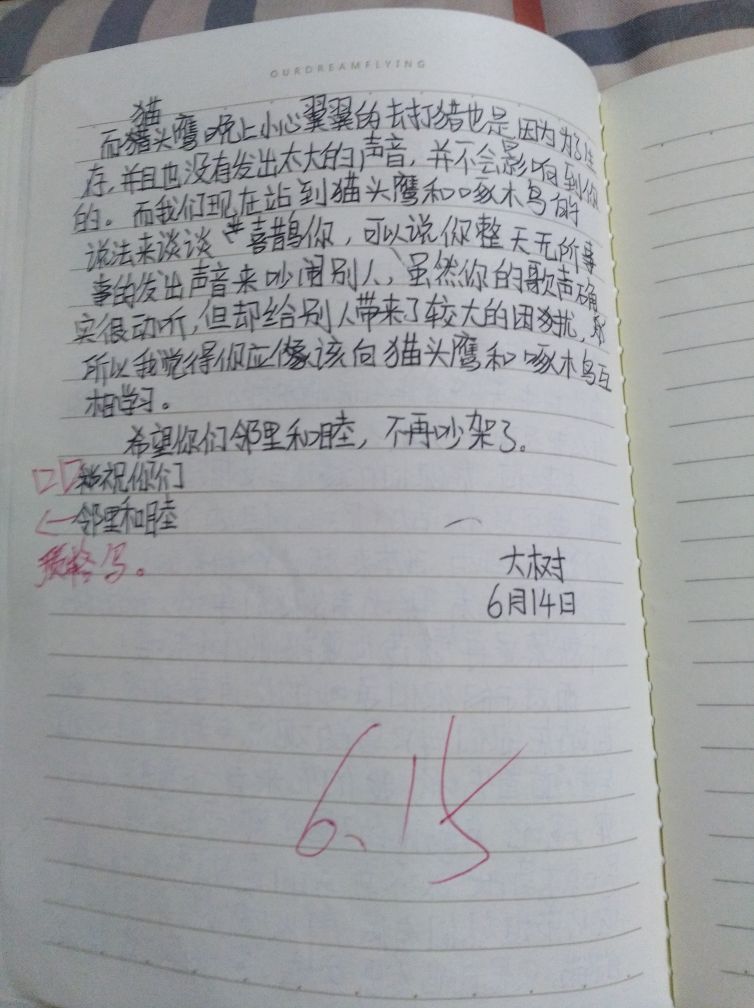 OURDREAMFLYING
猫
而猫头鹰晚上小心翼翼的去打猎也是因为了生
存,并且也没有发出太大的声音,并不会影响到你
的。而我们现在站到猫头鹰和啄木鸟的
说法来谈谈喜鹊你,可以说你整天无所事
事的发出声音来吵闹别人、虽然你的歌声确
实很动听,但却给别人带来了较大的困扰,
所以我觉得你应像该向猫头鹰和啄木鸟互
相学习。
希望你们邻里和睦,不再吵架了。
祝你们
邻里和睦
顶格写。
大树
6月14日
6、15